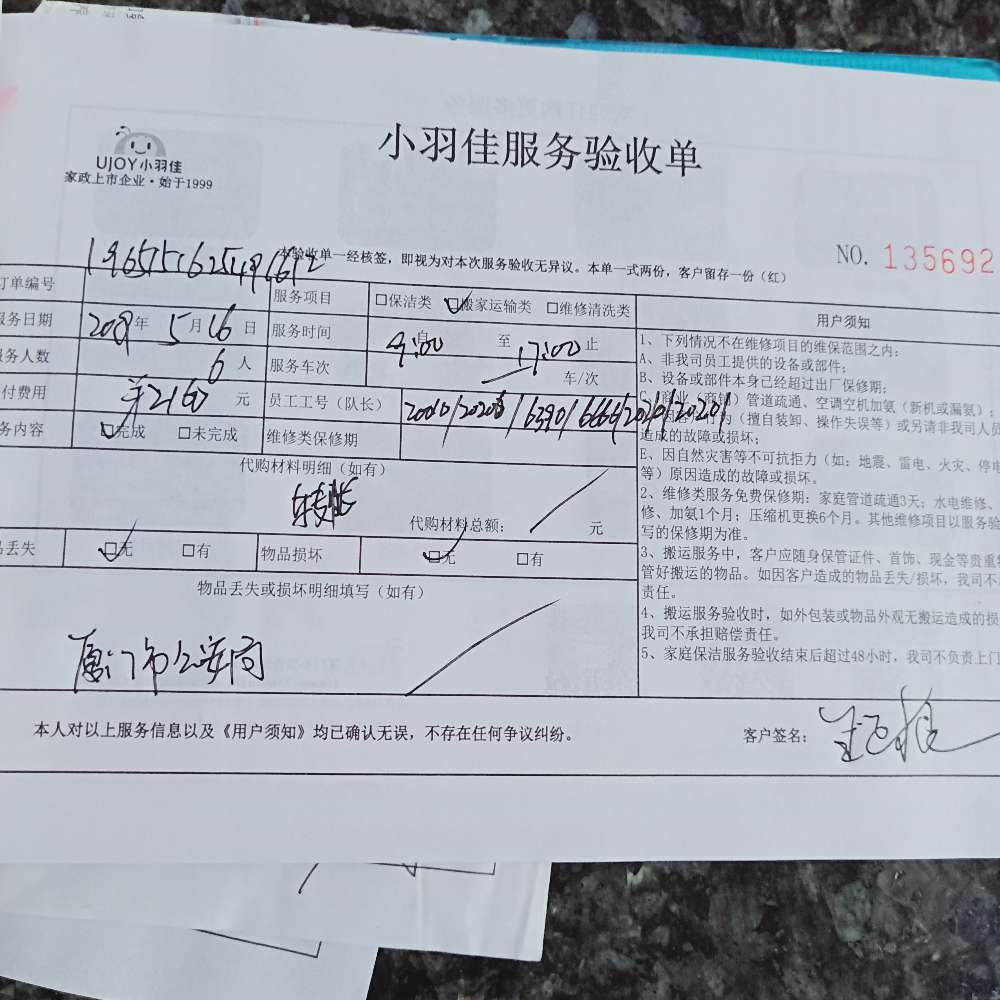 小羽佳服务验收单
UJOY小羽佳
家政上市企业·始于1999
本验收单一经核签，即视为对本次服务验收无异议。本单一式两份，客户留存一份（红）
NO. 135692
订单编号
服务项目 □保洁类 □搬家运输类 □维修清洗类
用户须知
服务日期 年 5月16日 服务时间 9:00 至 17:00 止
服务人数 6 人 服务车次 车/次
付费用 ¥2160 元 员工工号（队长）
务内容 □完成 □未完成 维修类保修期
代购材料明细（如有）
转账
代购材料总额： 元
品丢失 □无 □有 物品损坏 □无 □有
物品丢失或损坏明细填写（如有）
厦门市公安局
1、下列情况不在维修项目的维保范围之内：
A、非我司员工提供的设备或部件；
B、设备或部件本身已经超过出厂保修期；
管道疏通、空调空机加氨（新机或漏氨）；
（擅自装卸、操作失误等）或另请非我司人员
造成的故障或损坏；
E、因自然灾害等不可抗拒力（如：地震、雷电、火灾、停电
等）原因造成的故障或损坏。
2、维修类服务免费保修期：家庭管道疏通3天；水电维修、
修、加氨1个月；压缩机更换6个月。其他维修项目以服务验
写的保修期为准。
3、搬运服务中，客户应随身保管证件、首饰、现金等贵重
管好搬运的物品。如因客户造成的物品丢失/损坏，我司不
责任。
4、搬运服务验收时，如外包装或物品外观无搬运造成的损
我司不承担赔偿责任。
5、家庭保洁服务验收结束后超过48小时，我司不负责上门
本人对以上服务信息以及《用户须知》均已确认无误，不存在任何争议纠纷。
客户签名：